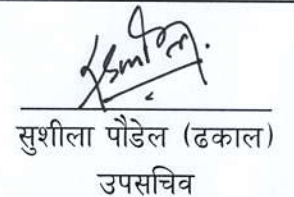 सुशीला पौडेल (ढकाल)
उपसचिव